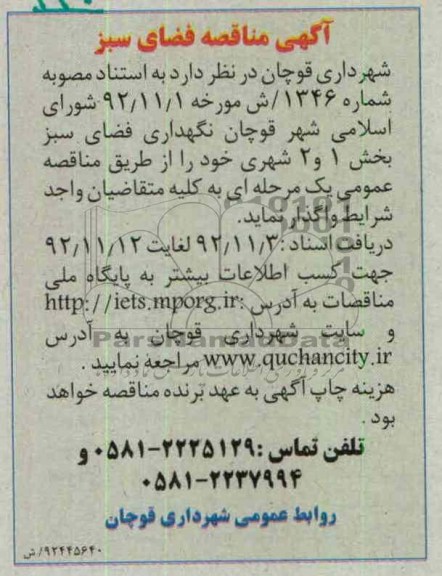 آگهی مناقصه فضای سبز
شهرداری قوچان در نظر دارد به استناد مصوبه
شماره ۱۳۴۶/ش مورخه ۹۲٫۱۱٫۱ شورای
اسلامی شهر قوچان نگهداری فضای سبز
بخش ۱ و۲ شهری خود را از طریق مناقصه
عمومی یک مرحله ای به کلیه متقاضیان واجد
شرایط واگذار نماید.
دریافت اسناد :۹۲٫۱۱٫۳ لغایت ۹۲٫۱۱٫۱۲
جهت کسب اطلاعات بیشتر به پایگاه ملی
مناقصات به آدرس :http://iets.mporg.ir
و سایت شهرداری قوچان به آدرس
www.quchancity.ir مراجعه نمایید .
هزینه چاپ آگهی به عهد برنده مناقصه خواهد
بود .
تلفن تماس :۲۲۲۵۱۲۹-۰۵۸۱ و
۰۵۸۱-۲۲۳۷۹۹۴
روابط عمومی شهرداری قوچان
۹۲۴۴۵۶۴۰/ش
ParsNamadData